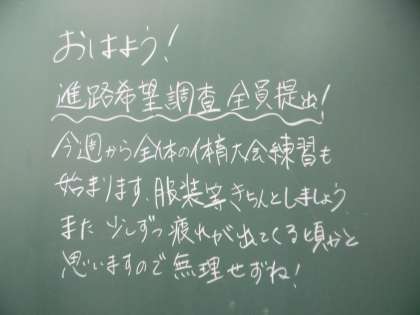 おはよう!
進路希望調査全員提出!
今週から全体の体育大会練習も
始まります、服装等きちんとしましょう
また 少しずつ疲れが出てくる頃かと
思いますので無理せずね!